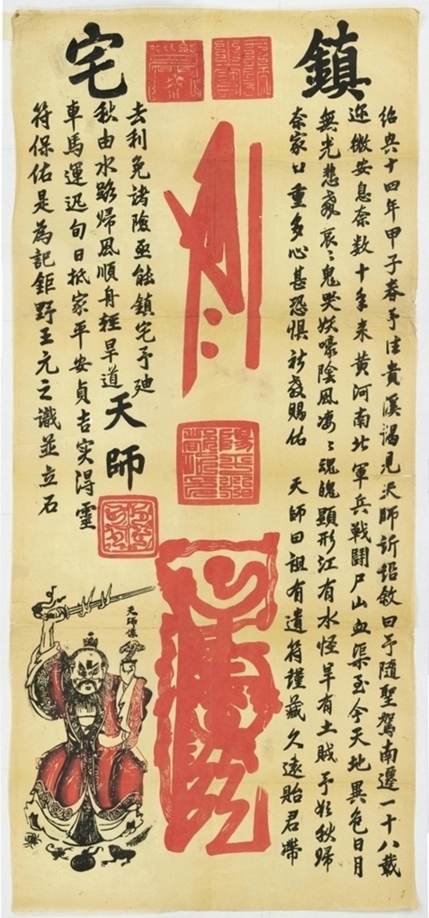 鎮宅
紹興十四年甲子春予往貴溪謁見天師訴語敘曰予隨聖駕南遷一十八載
迩徼安息奈数十年来黄河南北軍兵戰鬪尸山血渠至今天地異色日月
無光悲哀〻鬼哭妖嚎陰風凄〻魂魄顯形江有水怪旱有土賊予於秋歸
奈家口重多心甚恐懼祈教賜佑 天師曰祖有遺符謹藏久遠貽君帶
去利免諸險亟能鎮宅予廸
秋由水路歸風順舟輕旱道
車馬運迅旬日抵家平安貞吉实得靈
符保佑是為記鉅野王元之識並立石
天師
天師像